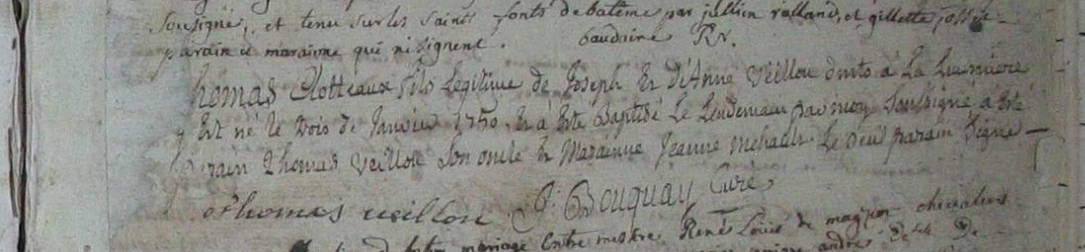 Sousigné, et tenu sur les saints fonts de batême par jullien rolland, et gillette josse
parain et maraine qui ne signent. baudaire Rr.
Thomas Clotteaux fils Legitime de Joseph Et d'Anne Veillon duits a La Lumiere
y Est né le trois de Janvier 1750. Et à Este Baptisé Le Lendemain par moy Soussigné a Esté
parain Thomas Veillon Son oncle Et Marainne Jeanne mehault Le Seul parain Signe
Thomas veillon P. Bouquay Curé
mariage Entre messire René Louis de chevalier
andré